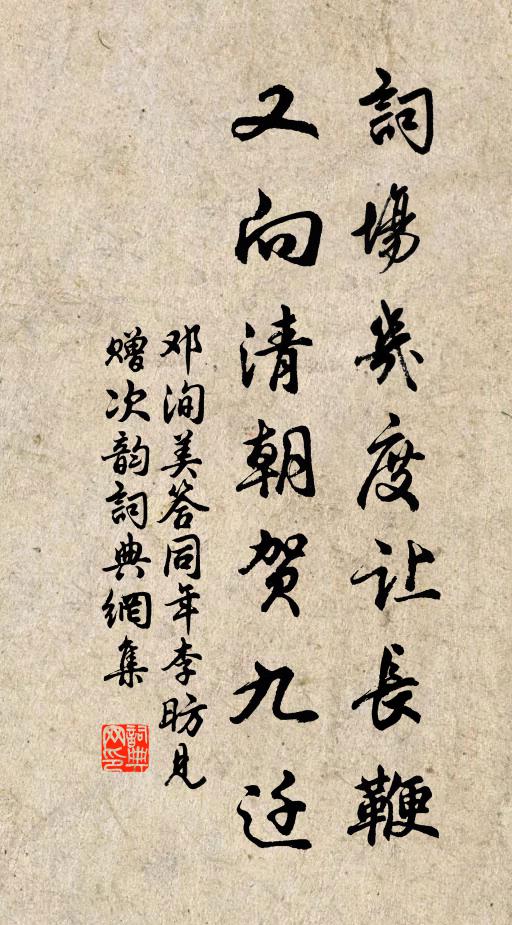 詞場幾度让長鞭
又向清朝贺九迁
邓洵美答同年李昉见
赠次韵詞典網集
詞典网印